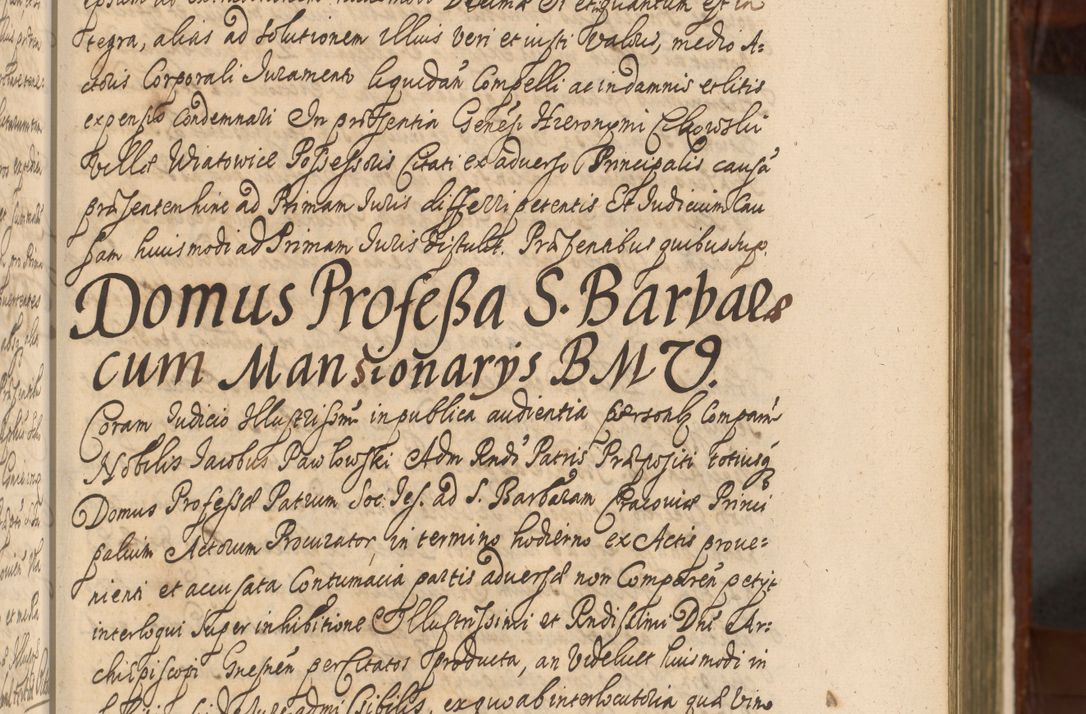 tegra, alias ad solutionem illius veri et iusti valoris, medio A-
ctoris Corporali Iuramento liquidan̄ Compelli ac in damnis et litis
expensis Condemnari In præsentia Genēsi Hieronymi
Villæ Wiatowice Possessoris Citati ex adverso Principalis causā
præsentem hinc ad Primam Iuris differri petentis Et Iudicium Cau
sam huiusmodi ad Primam Iuris distulit. Præsentibus quibus sup.
Domus Profeßa S. Barbaræ
cum Mansionarÿs B M V.
Coram Iudicio Illustrissimi in publica audientia personlr Comparēn
Nobilis Iacobus Pawlowski Adm Rndi Patris Præpositi totiusq
Domus Professæ Patrum Soc: Jes. ad S. Barbaram Cracoviæ Princi
palium Actorum Procurator, in termino hodierno ex Actis prove-
nienti et accusata Contumacia partis adversæ non Comparēn petÿt
interloqui super inhibitione Illustrissimi et Rndissimi Dni Ar-
chiepiscopi Gnesnēn per Citatos producta, an videlicet huiusmodi in
ex quo ab interlocutoria quæ vim